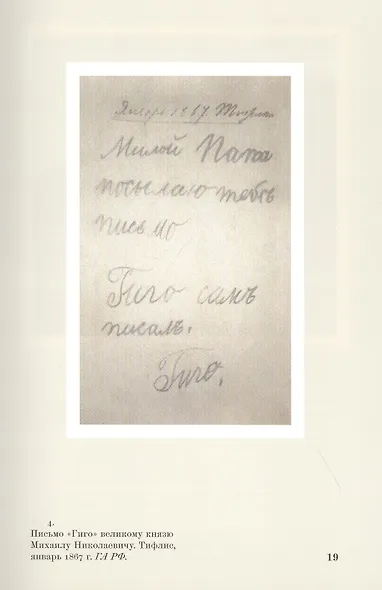 Январь 1867 Тифлис
Милой Папа
посылаю тебѣ
письмо
Гиго самъ
писалъ.
Гиго.
4.
Письмо «Гиго» великому князю
Михаилу Николаевичу. Тифлис,
январь 1867 г. ГА РФ.
19